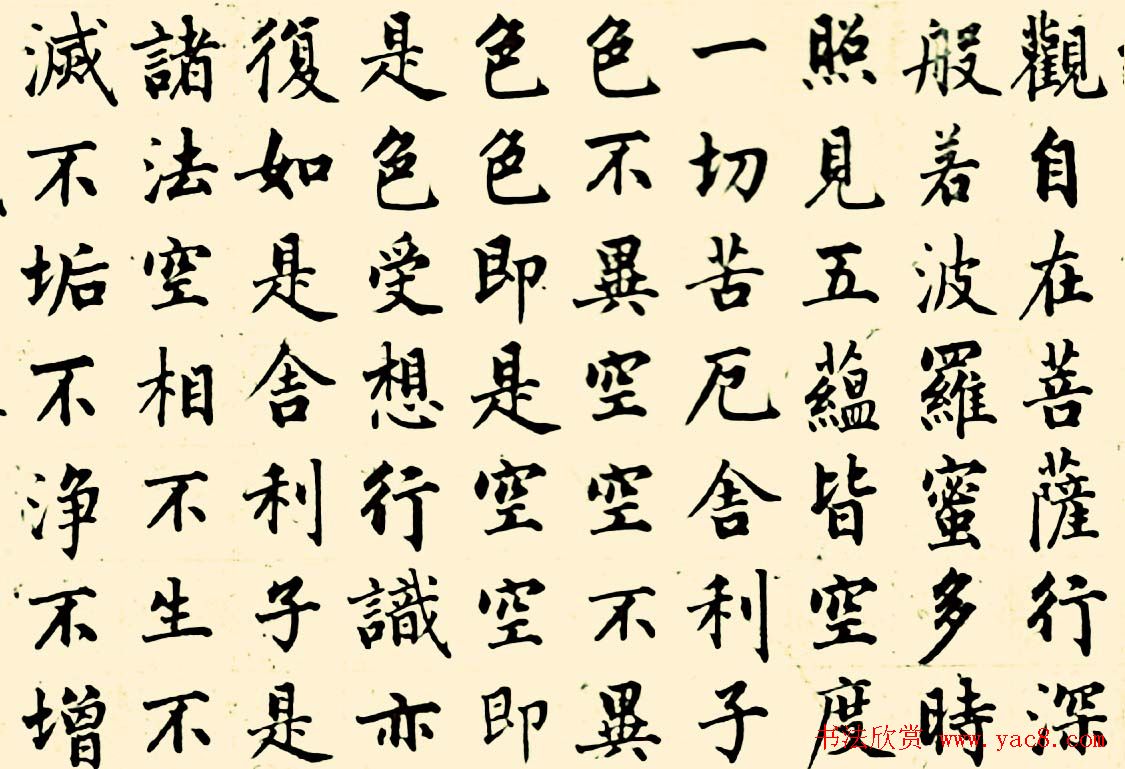 觀自在菩薩行深
般若波羅蜜多時
照見五蘊皆空度
一切苦厄舎利子
色不異空空不異
色色即是空空即
是色受想行識亦
復如是舎利子是
諸法空相不生不
滅不垢不淨不增
书法欣赏 www.yac8.com